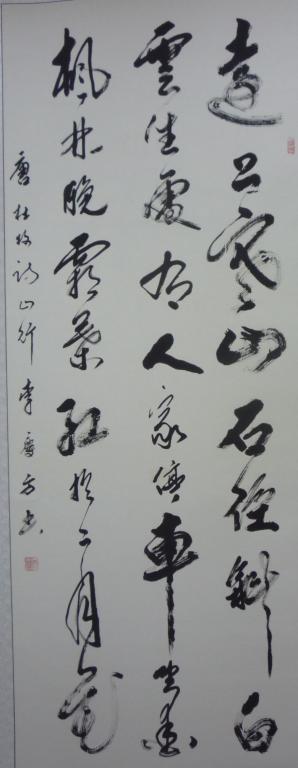 遠上寒山石徑斜白
雲生處有人家停車坐愛
楓林晚霜葉紅於二月花
唐杜牧詩山行李方書